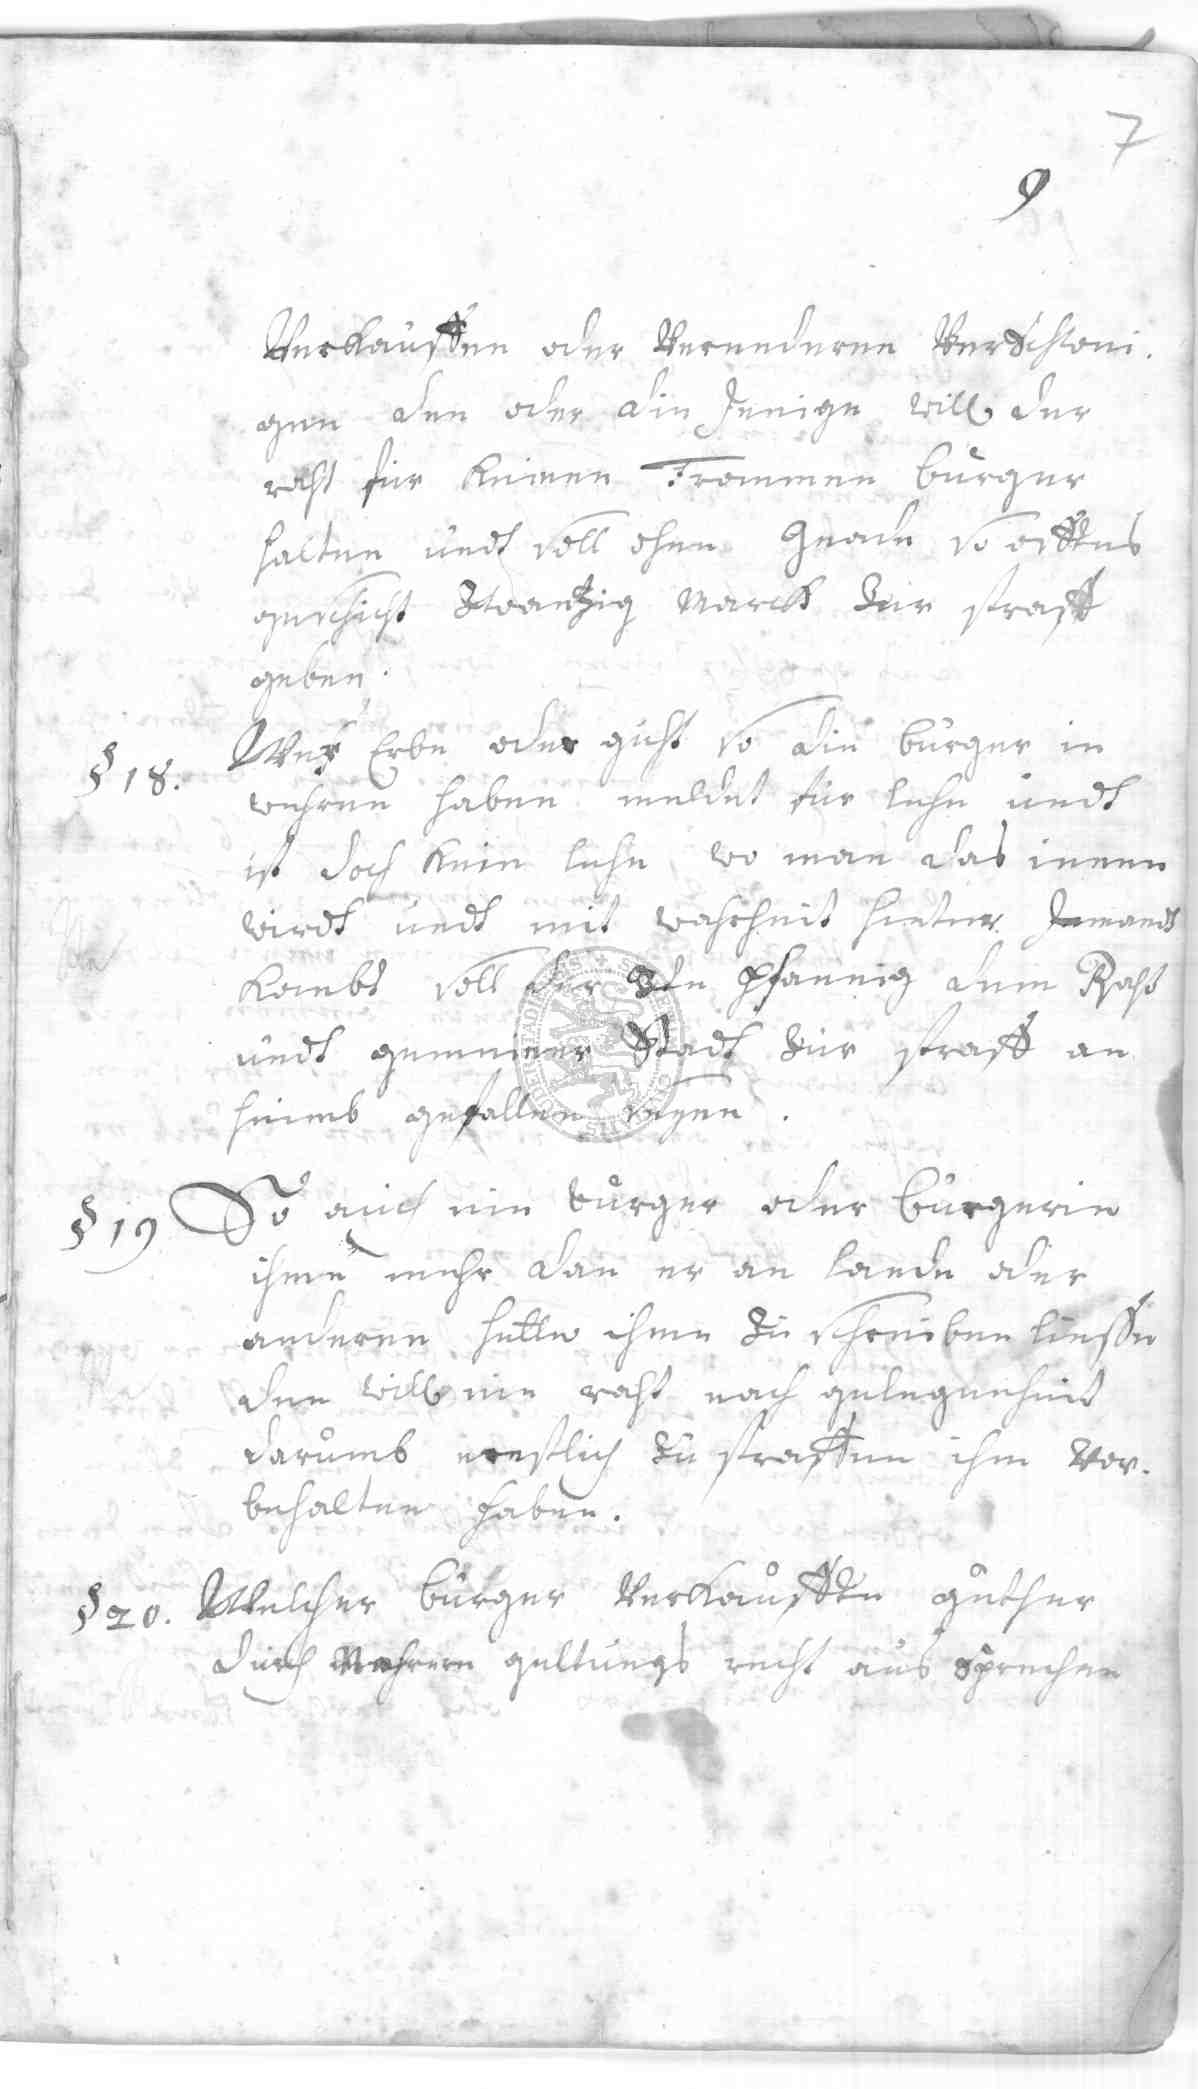 7
9
Verkauffen oder Verenderen Verschwi.
gen den oder die Jenige will der
raht für keinen Frommen bürger
halten undt soll ohne Gnade so offtes
geschicht Zwantzig Marck Zur straff
geben.
§ 18. Wer Erbe oder guht so die bürger in
wehren haben meldet für lehn undt
ist doch kein lehn, wo man das innen
wirdt undt mit wahrheit hinter Jemandt
kombt soll der 3te Pfannig dem Raht
undt gemeiner Stadt Zur straff an
heimb gefallen seyen.
§ 19 So auch ein burger oder bürgerin
ihme mehr dan er an lande oder
anderen hette ihme Zu schreiben liesse
den will ein raht nach gelegenheit
darumb ernstlich Zu straffen ihm Vor.
behalten haben.
§ 20. Welcher bürger Verkauffte guther
durch Mehrern geltungs recht aus sprechen